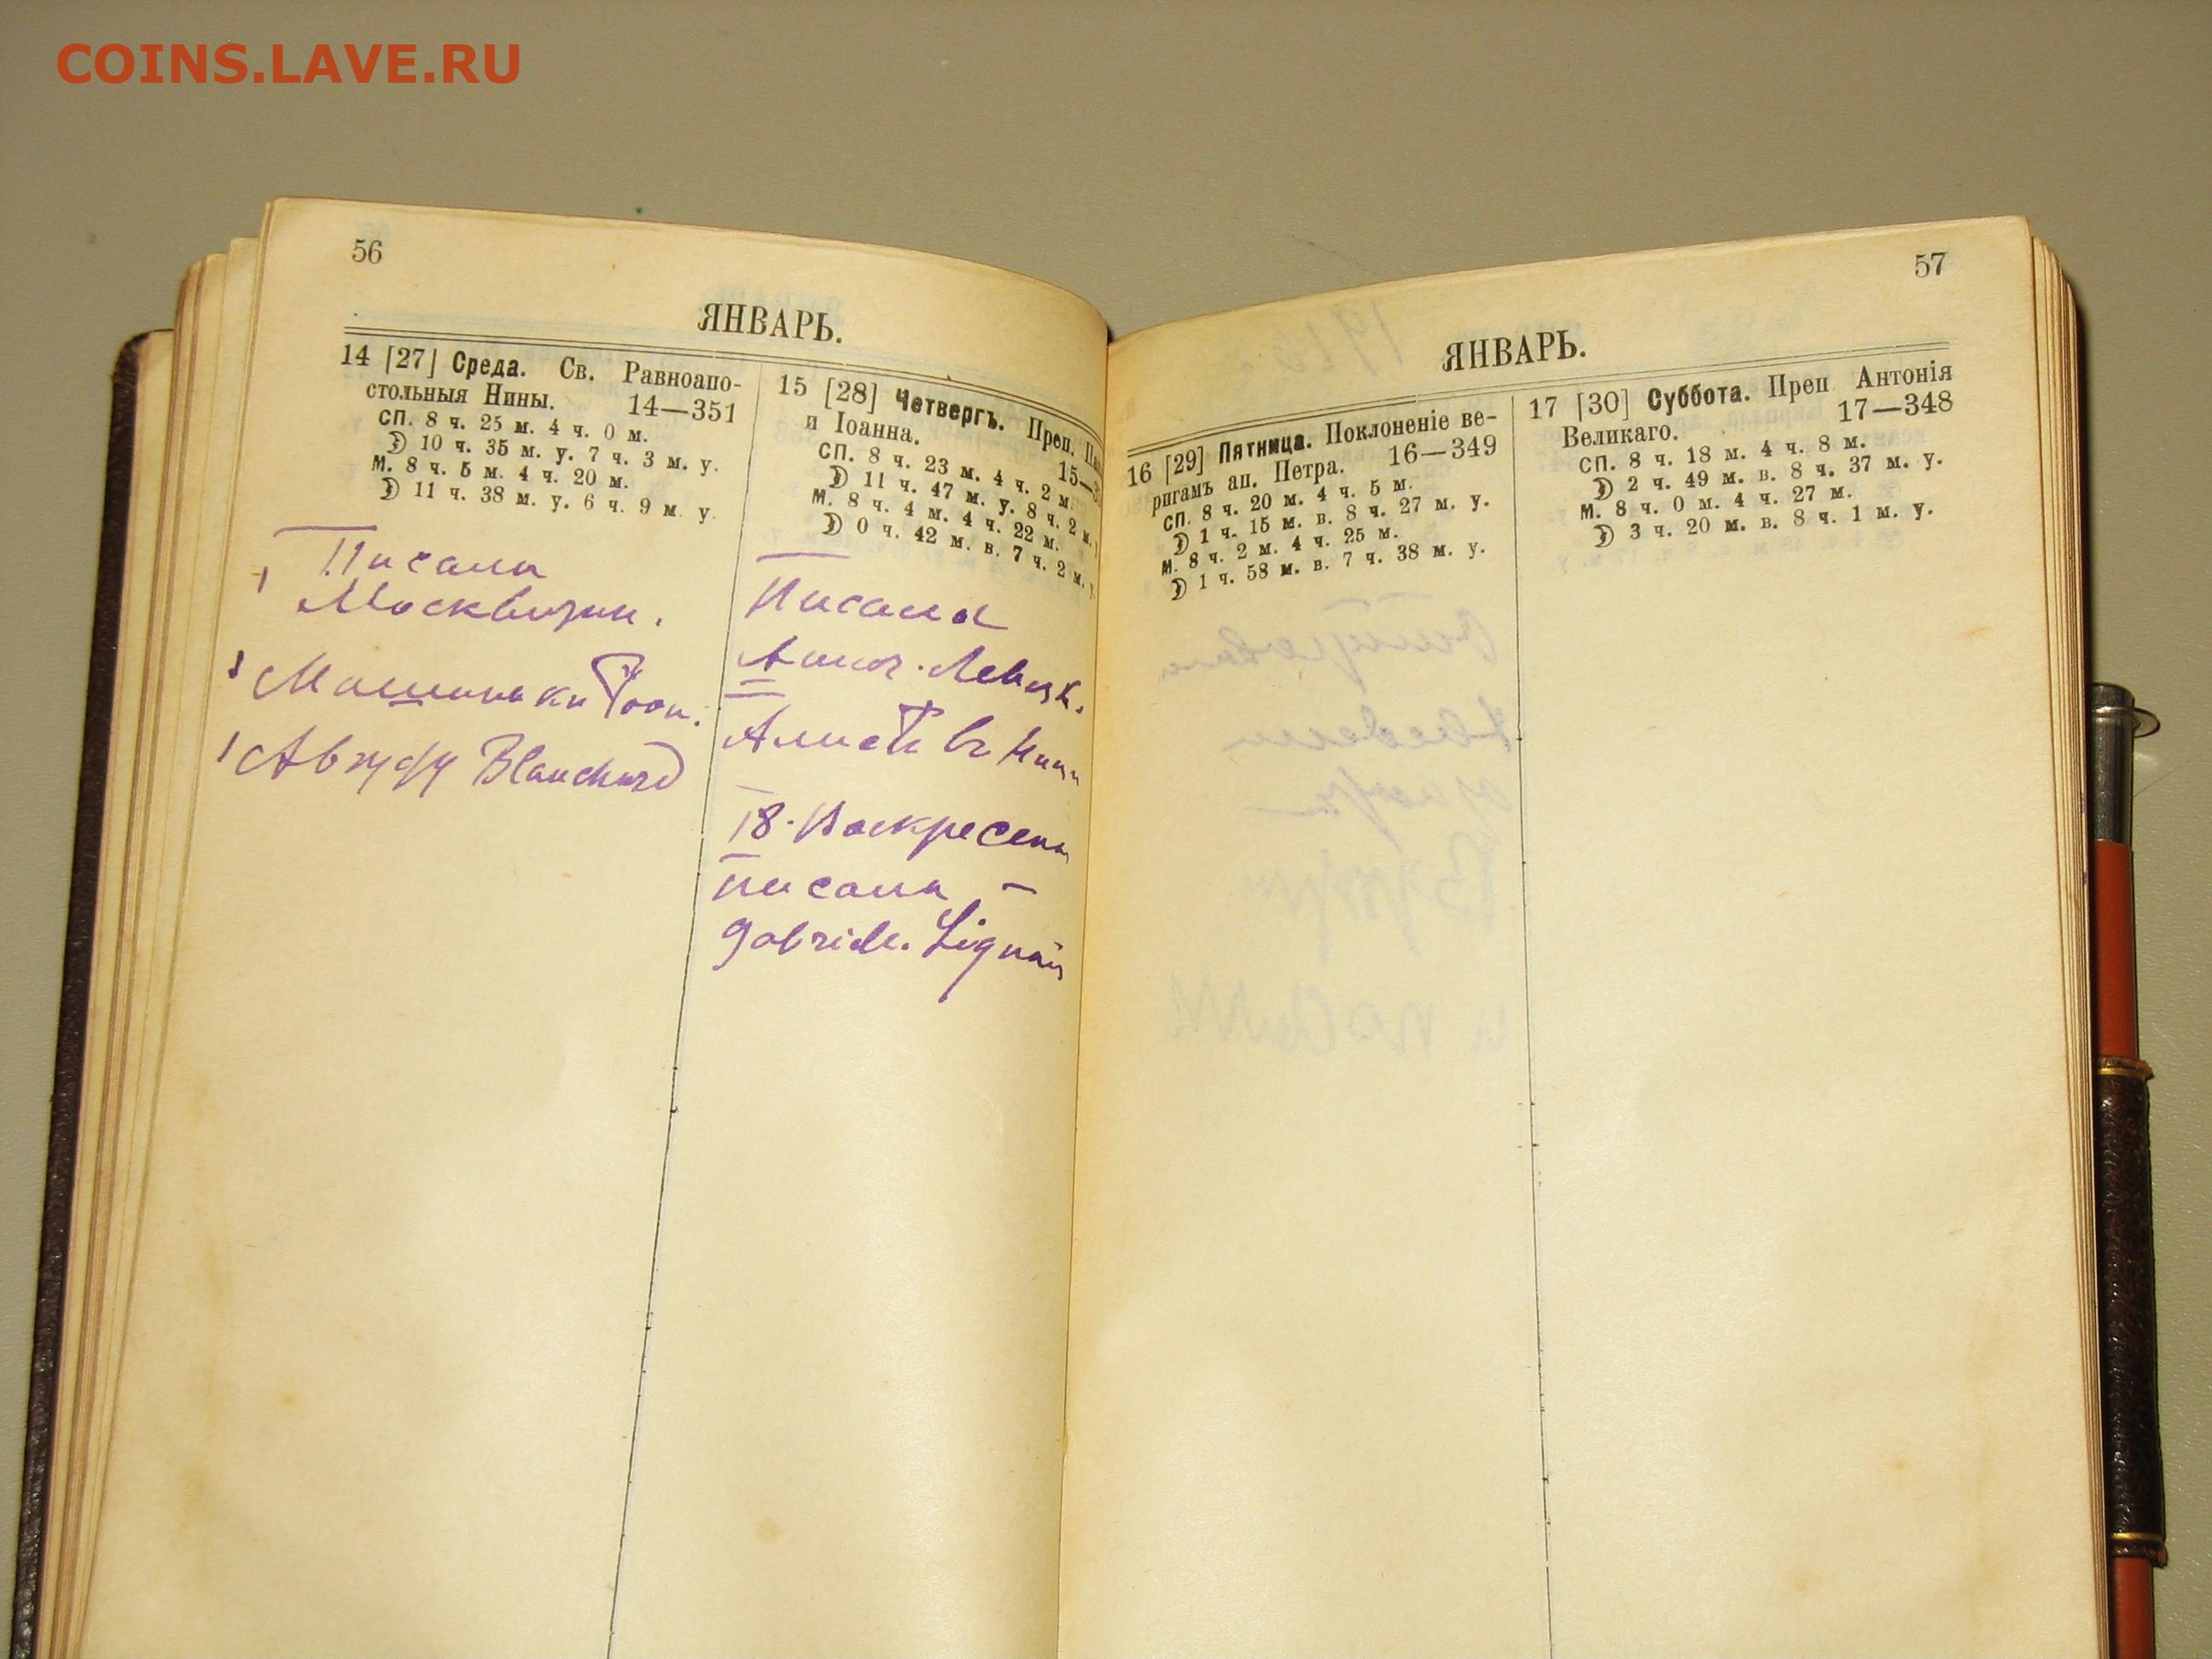 COINS.LAVE.RU
56
ЯНВАРЬ.
14 [27] Среда. Св. Равноапо-
стольныя Нины. 14—351
СП. 8 ч. 25 м. 4 ч. 0 м.
10 ч. 35 м. у. 7 ч. 3 м. у.
М. 8 ч. 5 м. 4 ч. 20 м.
11 ч. 38 м. у. 6 ч. 9 м. у.
Писала
Blanchard
15 [28] Четвергъ. Преп.
и Іоанна.
СП. 8 ч. 23 м. 4 ч. 2 м.
11 ч. 47 м. у. 8 ч. 2 м.
М. 8 ч. 4 м. 4 ч. 22 м.
0 ч. 42 м. в. 7 ч. 2 м.
Писала
18. Воскресень
писала —
57
ЯНВАРЬ.
16 [29] Пятница. Поклоненіе ве-
ригамъ ап. Петра. 16—349
СП. 8 ч. 20 м. 4 ч. 5 м.
1 ч. 15 м. в. 8 ч. 27 м. у.
М. 8 ч. 2 м. 4 ч. 25 м.
1 ч. 58 м. в. 7 ч. 38 м. у.
17 [30] Суббота. Преп Антонія
Великаго. 17—348
СП. 8 ч. 18 м. 4 ч. 8 м.
2 ч. 49 м. в. 8 ч. 37 м. у.
М. 8 ч. 0 м. 4 ч. 27 м.
3 ч. 20 м. в. 8 ч. 1 м. у.